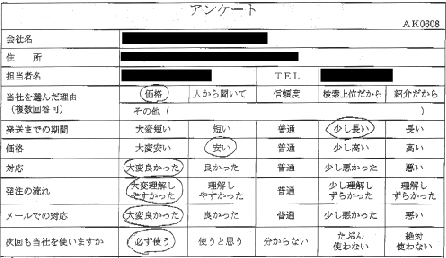 アンケート
AK0808
会社名
住 所
担当者名 TEL
当社を選んだ理由 価格 人から聞いて 信頼度 検索上位だから 紹介だから
(複数回答可) その他( )
発送までの期間 大変短い 短い 普通 少し長い 長い
価格 大変安い 安い 普通 少し高い 高い
対応 大変良かった 良かった 普通 少し悪かった 悪い
発注の流れ 大変理解しやすかった 理解しやすかった 普通 少し理解しずらかった 理解しずらかった
メールでの対応 大変良かった 良かった 普通 少し悪かった 悪い
次回も当社を使いますか 必ず使う 使うと思う 分からない たぶん使わない 絶対使わない